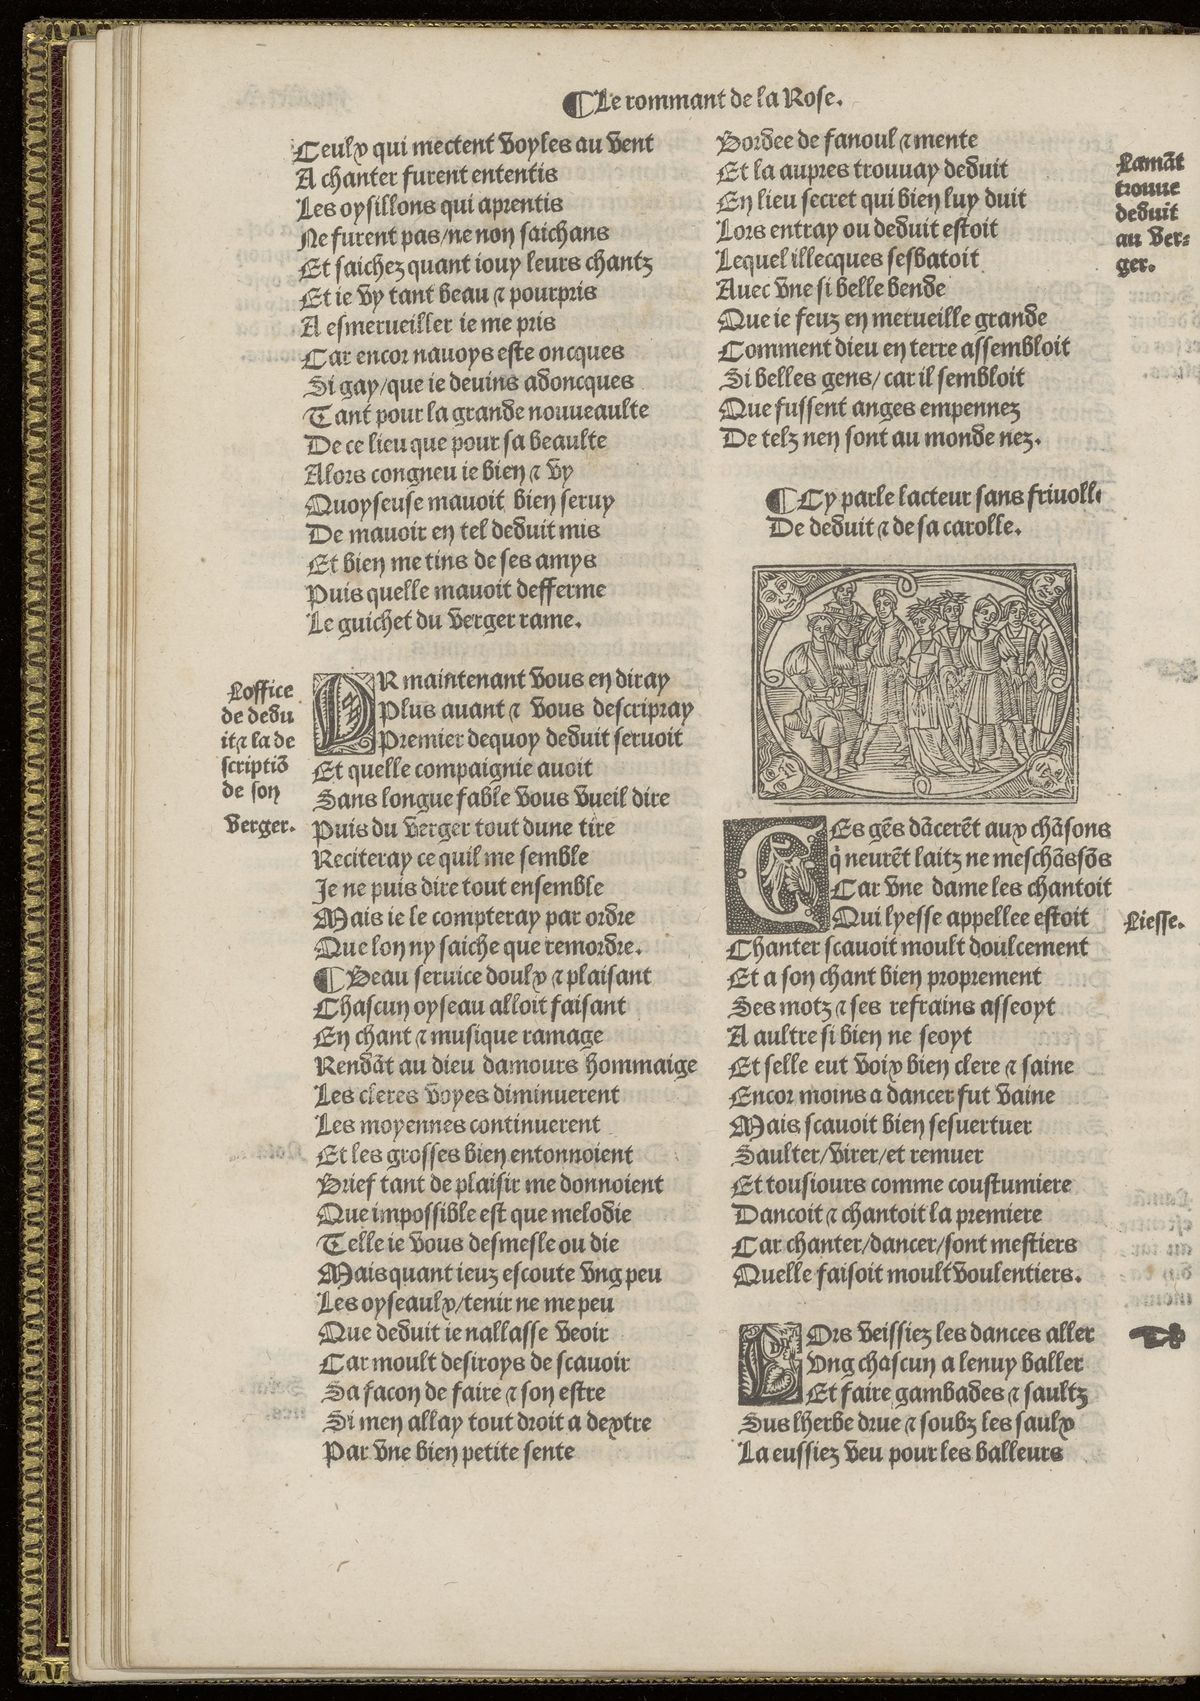 ¶Le rommant de la Rose.
Ceulx qui mectent voyles au vent
A chanter furent ententis
Les oysillons qui aprentis
Ne furent pas/ne non saichans
Et saichez quant iouy leurs chantz
Et ie vy tant beau ⁊ pourpris
A esmerueiller ie me pris
Car encor nauoys este oncques
Si gay/que ie deuins adoncques
Tant pour la grande nouueaulte
De ce lieu que pour sa beaulte
Alors congneu ie bien ⁊ vy
Quoyseuse mauoit bien seruy
De mauoir en tel deduit mis
Et bien me tins de ses amys
Puis quelle mauoit defferme
Le guichet du verger rame.
Loffice
de dedu
it⁊ la de
scriptiō
de son
verger.
OR maintenant vous en diray
Plus auant ⁊ vous descripray
Premier dequoy deduit seruoit
Et quelle compaignie auoit
Sans longue fable vous vueil dire
Puis du verger tout dune tire
Reciteray ce quil me semble
Je ne puis dire tout ensemble
Mais ie le compteray par ordre
Que lon ny saiche que remordre.
¶Beau seruice doulx ⁊ plaisant
Chascun oyseau alloit faisant
En chant ⁊ musique ramage
Rendāt au dieu damours hommaige
Les cleres voyes diminuerent
Les moyennes continuerent
Et les grosses bien entonnoient
Brief tant de plaisir me donnoient
Que impossible est que melodie
Telle ie vous desmesle ou die
Mais quant ieuz escoute vng peu
Les oyseaulx/tenir ne me peu
Que deduit ie nallasse veoir
Car moult desiroys de scauoir
Sa facon de faire ⁊ son estre
Si men allay tout droit a dextre
Par vne bien petite sente
Bordee de fanoul ⁊ mente
Et la aupres trouuay deduit
En lieu secret qui bien luy duit
Lors entray ou deduit estoit
Lequel illecques sesbatoit
Auec vne si belle bende
Que ie feuz en merueille grande
Comment dieu en terre assembloit
Si belles gens/ car il sembloit
Que fussent anges empennez
De telz nen sont au monde nez.
Lamāt
trouue
deduit
au ver⸗
ger.
¶Cy parle lacteur sans friuolle
De deduit ⁊ de sa carolle.
CEs gēs dācerēt aux chāsons
q̄ neurēt laitz ne meschāssōs
Car vne dame les chantoit
Qui lyesse appellee estoit
Liesse.
Chanter scauoit moult doulcement
Et a son chant bien proprement
Ses motz ⁊ ses refrains asseoyt
A aultre si bien ne seoyt
Et selle eut voix bien clere ⁊ saine
Encor moins a dancer fut vaine
Mais scauoit bien sesuertuer
Saulter/virer/et remuer
Et tousiours comme coustumiere
Dancoit ⁊ chantoit la premiere
Car chanter/dancer/sont mestiers
Quelle faisoit moult voulentiers.
LOrs veissiez les dances aller
Vng chascun a lenuy baller
Et faire gambades ⁊ saultz
Sus lherbe drue ⁊ soubz les saulx
La eussiez veu pour les balleurs